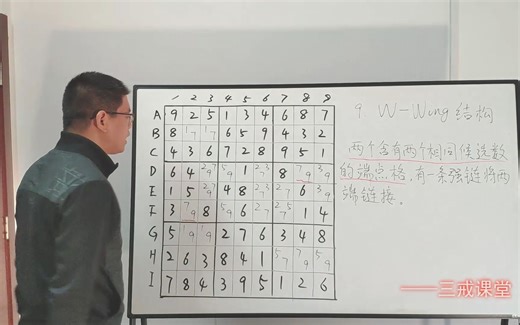 一 2 3 4 5 6 7 8 9
A 9 2 5 1 3 4 6 8 7
B 8 17 17 6 5 9 4 3 2
C 4 3 6 7 2 8 9 5 1
D 6 4 1 8
E 1 5 4 8 6
F 3 79 8 59 6 1 4
G 5 19 19 2 7 6 3 4 8
H 2 6 3 8 4 1 57 79 59
I 7 8 4 3 9 5 1 2 6
9 W-Wing结构
两个含有两个相同候选数
的端点格,有一条强链将两
端链接。
——三戒课堂